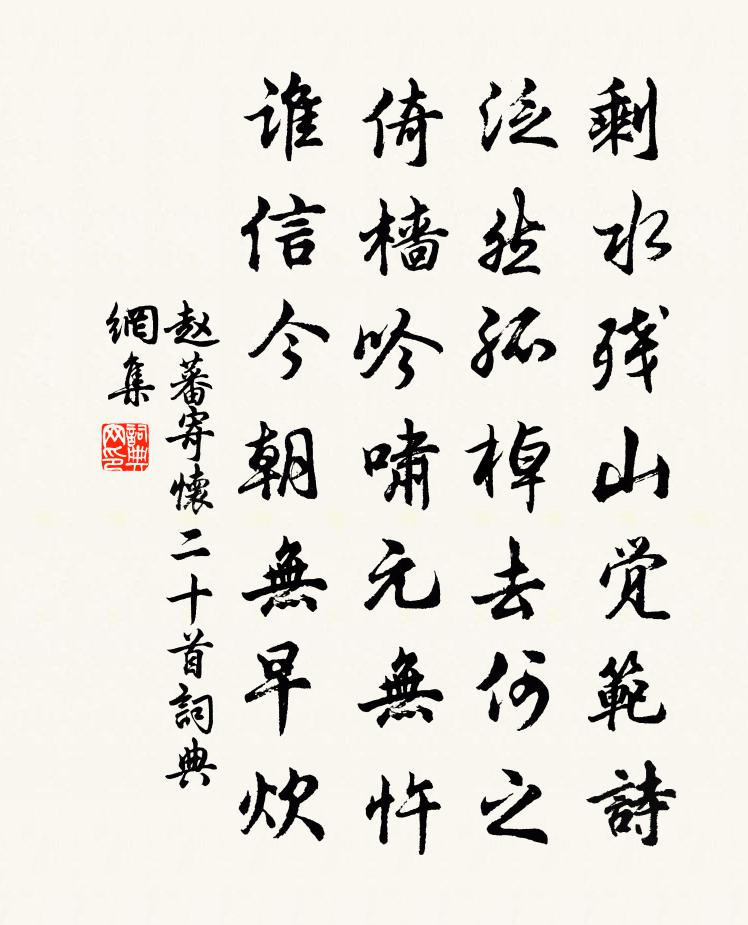 剩水残山觉範詩
泛然孤棹去何之
倚檣吟嘯元無忤
谁信今朝無早炊
赵蕃寄懷二十首詞典
網集
詞典
网印